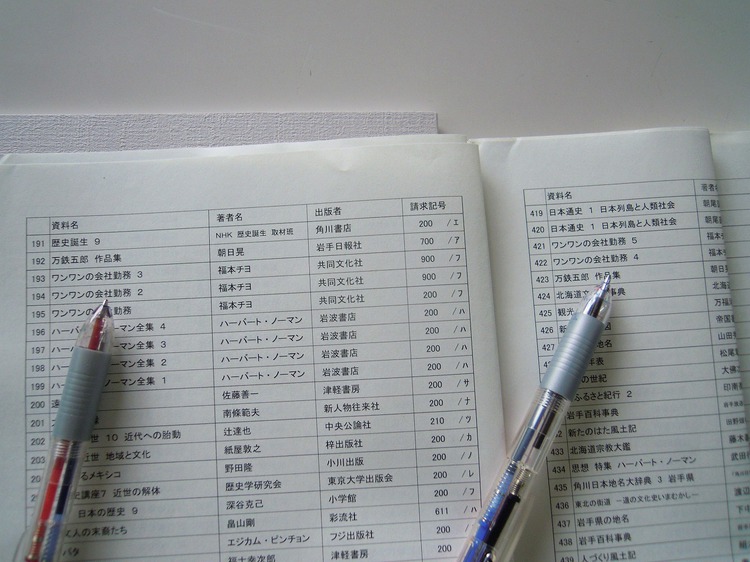 資料名 著者名 出版者 請求記号
191 歴史誕生 9 NHK 歴史誕生 取材班 角川書店 200 /エ
192 万鉄五郎 作品集 朝日晃 岩手日報社 700 /ア
193 ワンワンの会社勤務 3 福本チヨ 共同文化社 900 /フ
194 ワンワンの会社勤務 2 福本チヨ 共同文化社 900 /フ
195 ワンワンの会社勤務 福本チヨ 共同文化社 200 /フ
196 ハー ーマン全集 4 ハーバート・ノーマン 岩波書店 200 /ハ
197 ハー ーマン全集 3 ハーバート・ノーマン 岩波書店 200 /ハ
198 ハー ーマン全集 2 ハーバート・ノーマン 岩波書店 200 /ハ
199 ハー ノーマン全集 1 ハーバート・ノーマン 岩波書店 200 /ハ
200 佐藤善一 津軽書房 200 /サ
201 南條範夫 新人物往来社 200 /ナ
202 世 10 近代への胎動 辻達也 中央公論社 210 /ツ
203 世 地域と文化 紙屋敦之 梓出版社 200 /カ
るメキシコ 野田隆 小川出版 200 /ノ
史講座7 近世の解体 歴史学研究会 東京大学出版会 200 /レ
日本の歴史 9 深谷克己 小学館 200 /フ
人の末裔たち 畠山剛 彩流社 611 /ハ
バタ エジカム・ピンチョン フジ出版社 200
福士幸次郎 津軽書房
資料名 著者
419 日本通史 1 日本列島と人類社会 朝尾
420 日本通史 1 日本列島と人類社会 朝尾
421 ワンワンの会社勤務 5 福本チ
422 ワンワンの会社勤務 4 福本チ
423 万鉄五郎 作品集 朝日
424 北海道 事典 北海
425 観光 万福
426 新 帝国
427 の地名 山田
年表 松尾
の世紀 大佛
ふるさと紀行 2 印東
岩手百科事典
432 新たのはた風土記
433 北海道宗教大鑑 藤木
434 思想 特集 ハーバート・ノーマン 武田
435 角川日本地名大辞典 3 岩手県
436 東北の街道 -道の文化史いまむかし- 渡辺
437 岩手県の地名 下中
438 岩手百科事典
439 人づくり風土記